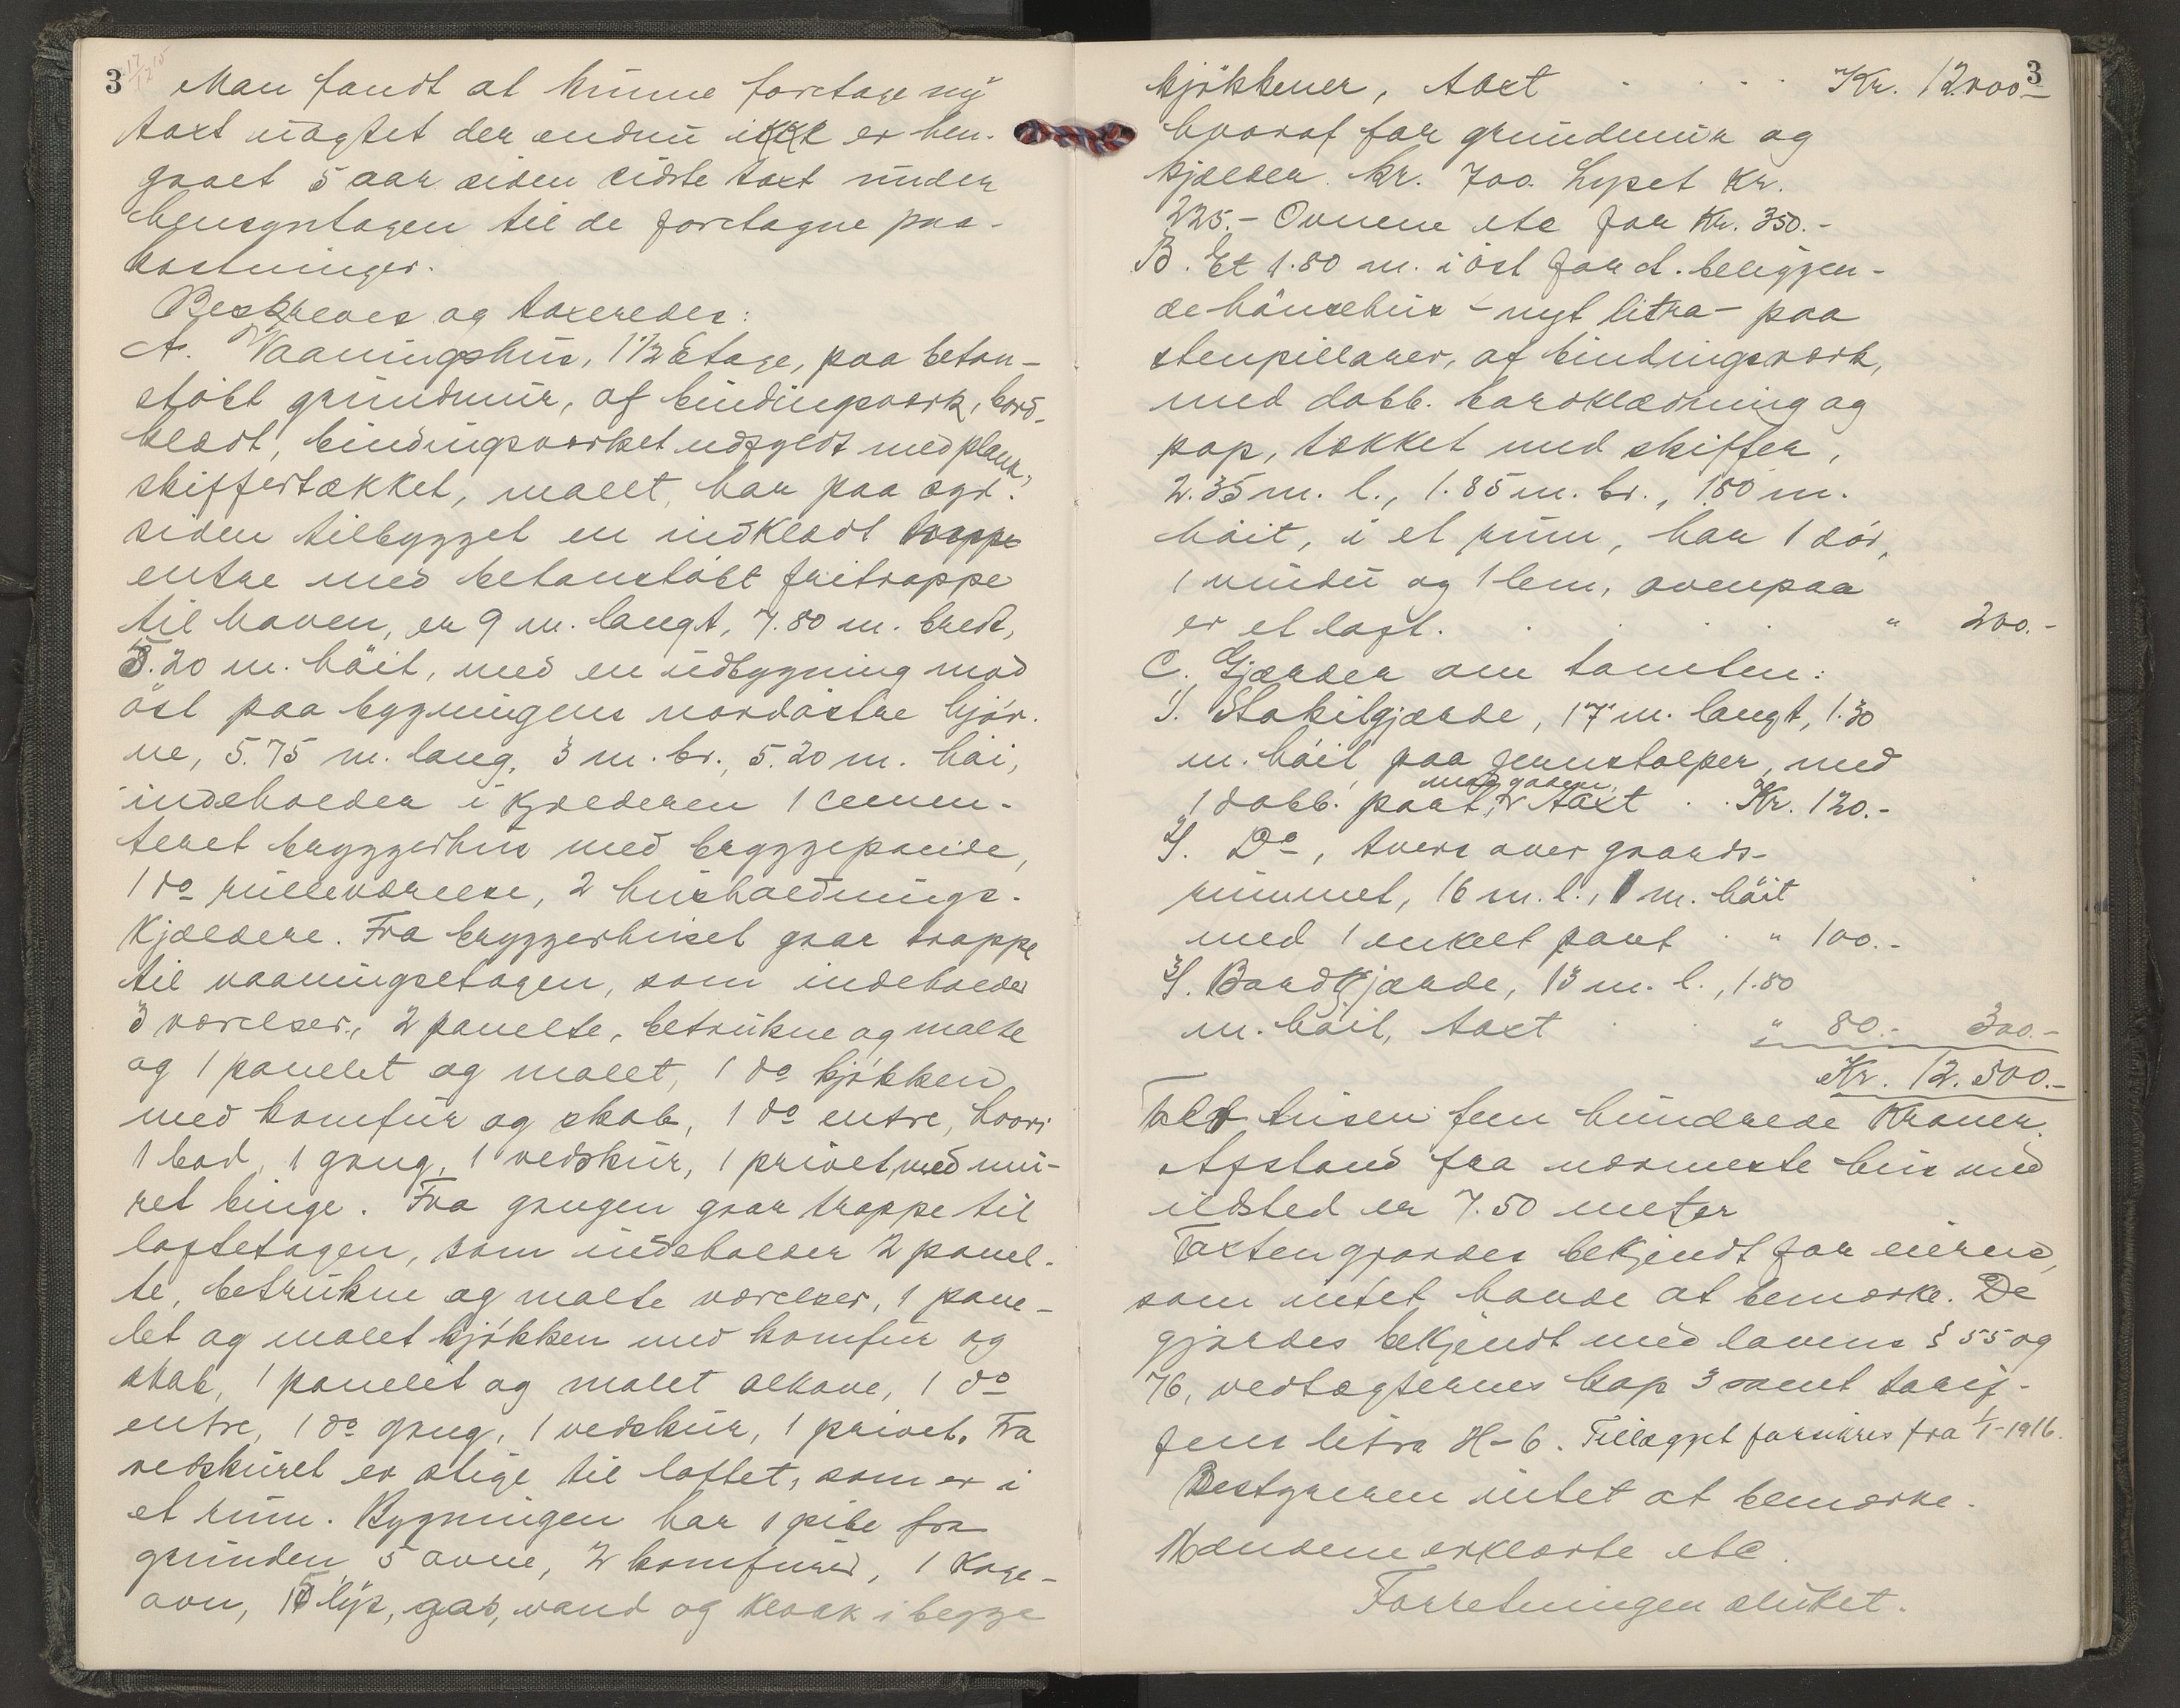 3
17/12 15
Man fandt at kunne foretage ny
taxt uagtet der endnu ikke er hen-
gaaet 5 aar siden sidste taxt under
hensyntagen til de foretagne paa-
kostninger.
Beskreves og taxeredes:
A. Vaaningshus, 1 1/2 Etage, paa beton-
støbt grundmur, af bindingsværk, bord-
klædt, bindingsverket udfyldt med plank,
skiffertækket, malt, har paa syd-
siden tilbygget en indklædt trappe
entre med betonstøbt fritrappe
til haven, er 9 m. langt, 7.80 m. bredt,
5.20 m. höit, med en udbygning mod
öst paa bygningens nordöstre hjör-
ne, 5.75 m. lang, 3 m. br., 5.20 m. höi,
indeholder i Kjælderen 1 cemen-
teret bryggerhus med bryggepande,
1 do rulleværelse, 2 husholdnings-
Kjældere. Fra bryggerhuset gaar trappe
til vaaningsetagen, som indeholder
3 værelser, 2 panelte, betrukne og malte
og 1 panelet og malet, 1 do kjökken
med komfur og skab, 1 do entre, hvori
1 bod, 1 gang, 1 vedskur, 1 privet, med mu-
ret binge. Fra gangen gaar trappe til
loftetagen, som indeholder 2 panel-
te, betrukne og malte værelser, 1 pane-
let og malet kjökken med komfur og
skab, 1 panelet og malet alkove, 1 do
entre, 1 do gang, 1 vedskur, 1 privet. Fra
vedskuret er stige til loftet, som er i
et rum. Bygningen har 1 pibe fra
grunden, 5 ovne, 2 komfurer, 1 Koge-
ovn, 15 lys, gas, vand og kloak i begge
3
kjökkener, taxt Kr. 12.000-
hvoraf for grundmur og
kjælder kr. 700. Lyset Kr.
225.- Ovnene etc for Kr. 350.-
B. Et 1.80 m. i öst for A. beliggen-
de hönsehus - nyt litra - paa
stenpillarer, af bindingsværk,
med dobb. bordklædning og
pap, tækket med skiffer,
2.35 m. l., 1.85 m. br., 1.80 m.
höit, i et rum, har 1 dör,
1 vindu og 1 lem, ovenpaa
er et loft. " 200.-
C. Gjærder om tomten:
1). Stakitgjærde, 17 m. langt, 1.30
m. höit paa jernstolper, med
mod gaden,
1 dobb. port, taxt Kr. 120.-
2). Do, tvers over gaards-
rummet, 16 m. l., 1 m. höit
med 1 enkelt port " 100.-
3). Bordgjærde, 13 m. l., 1.80
m. höit, taxt " 80.- 300.-
Kr. 12.500.-
Tolv tusen fem hundrede Kroner.
Afstand fra nærmeste hus med
ildsted er 7.50 meter
Taxten gjordes bekjendt for eierne,
som intet havde at bemærke. De
gjordes bekjendt med lovens § 55 og
76, vedtægternes kap 3 samt tarif-
fens litra H-6. Tillægget forsikres fra 1/1-1916.
Bestyreren intet at bemærke.
Mændene erklærte etc.
Forretningen sluttet.